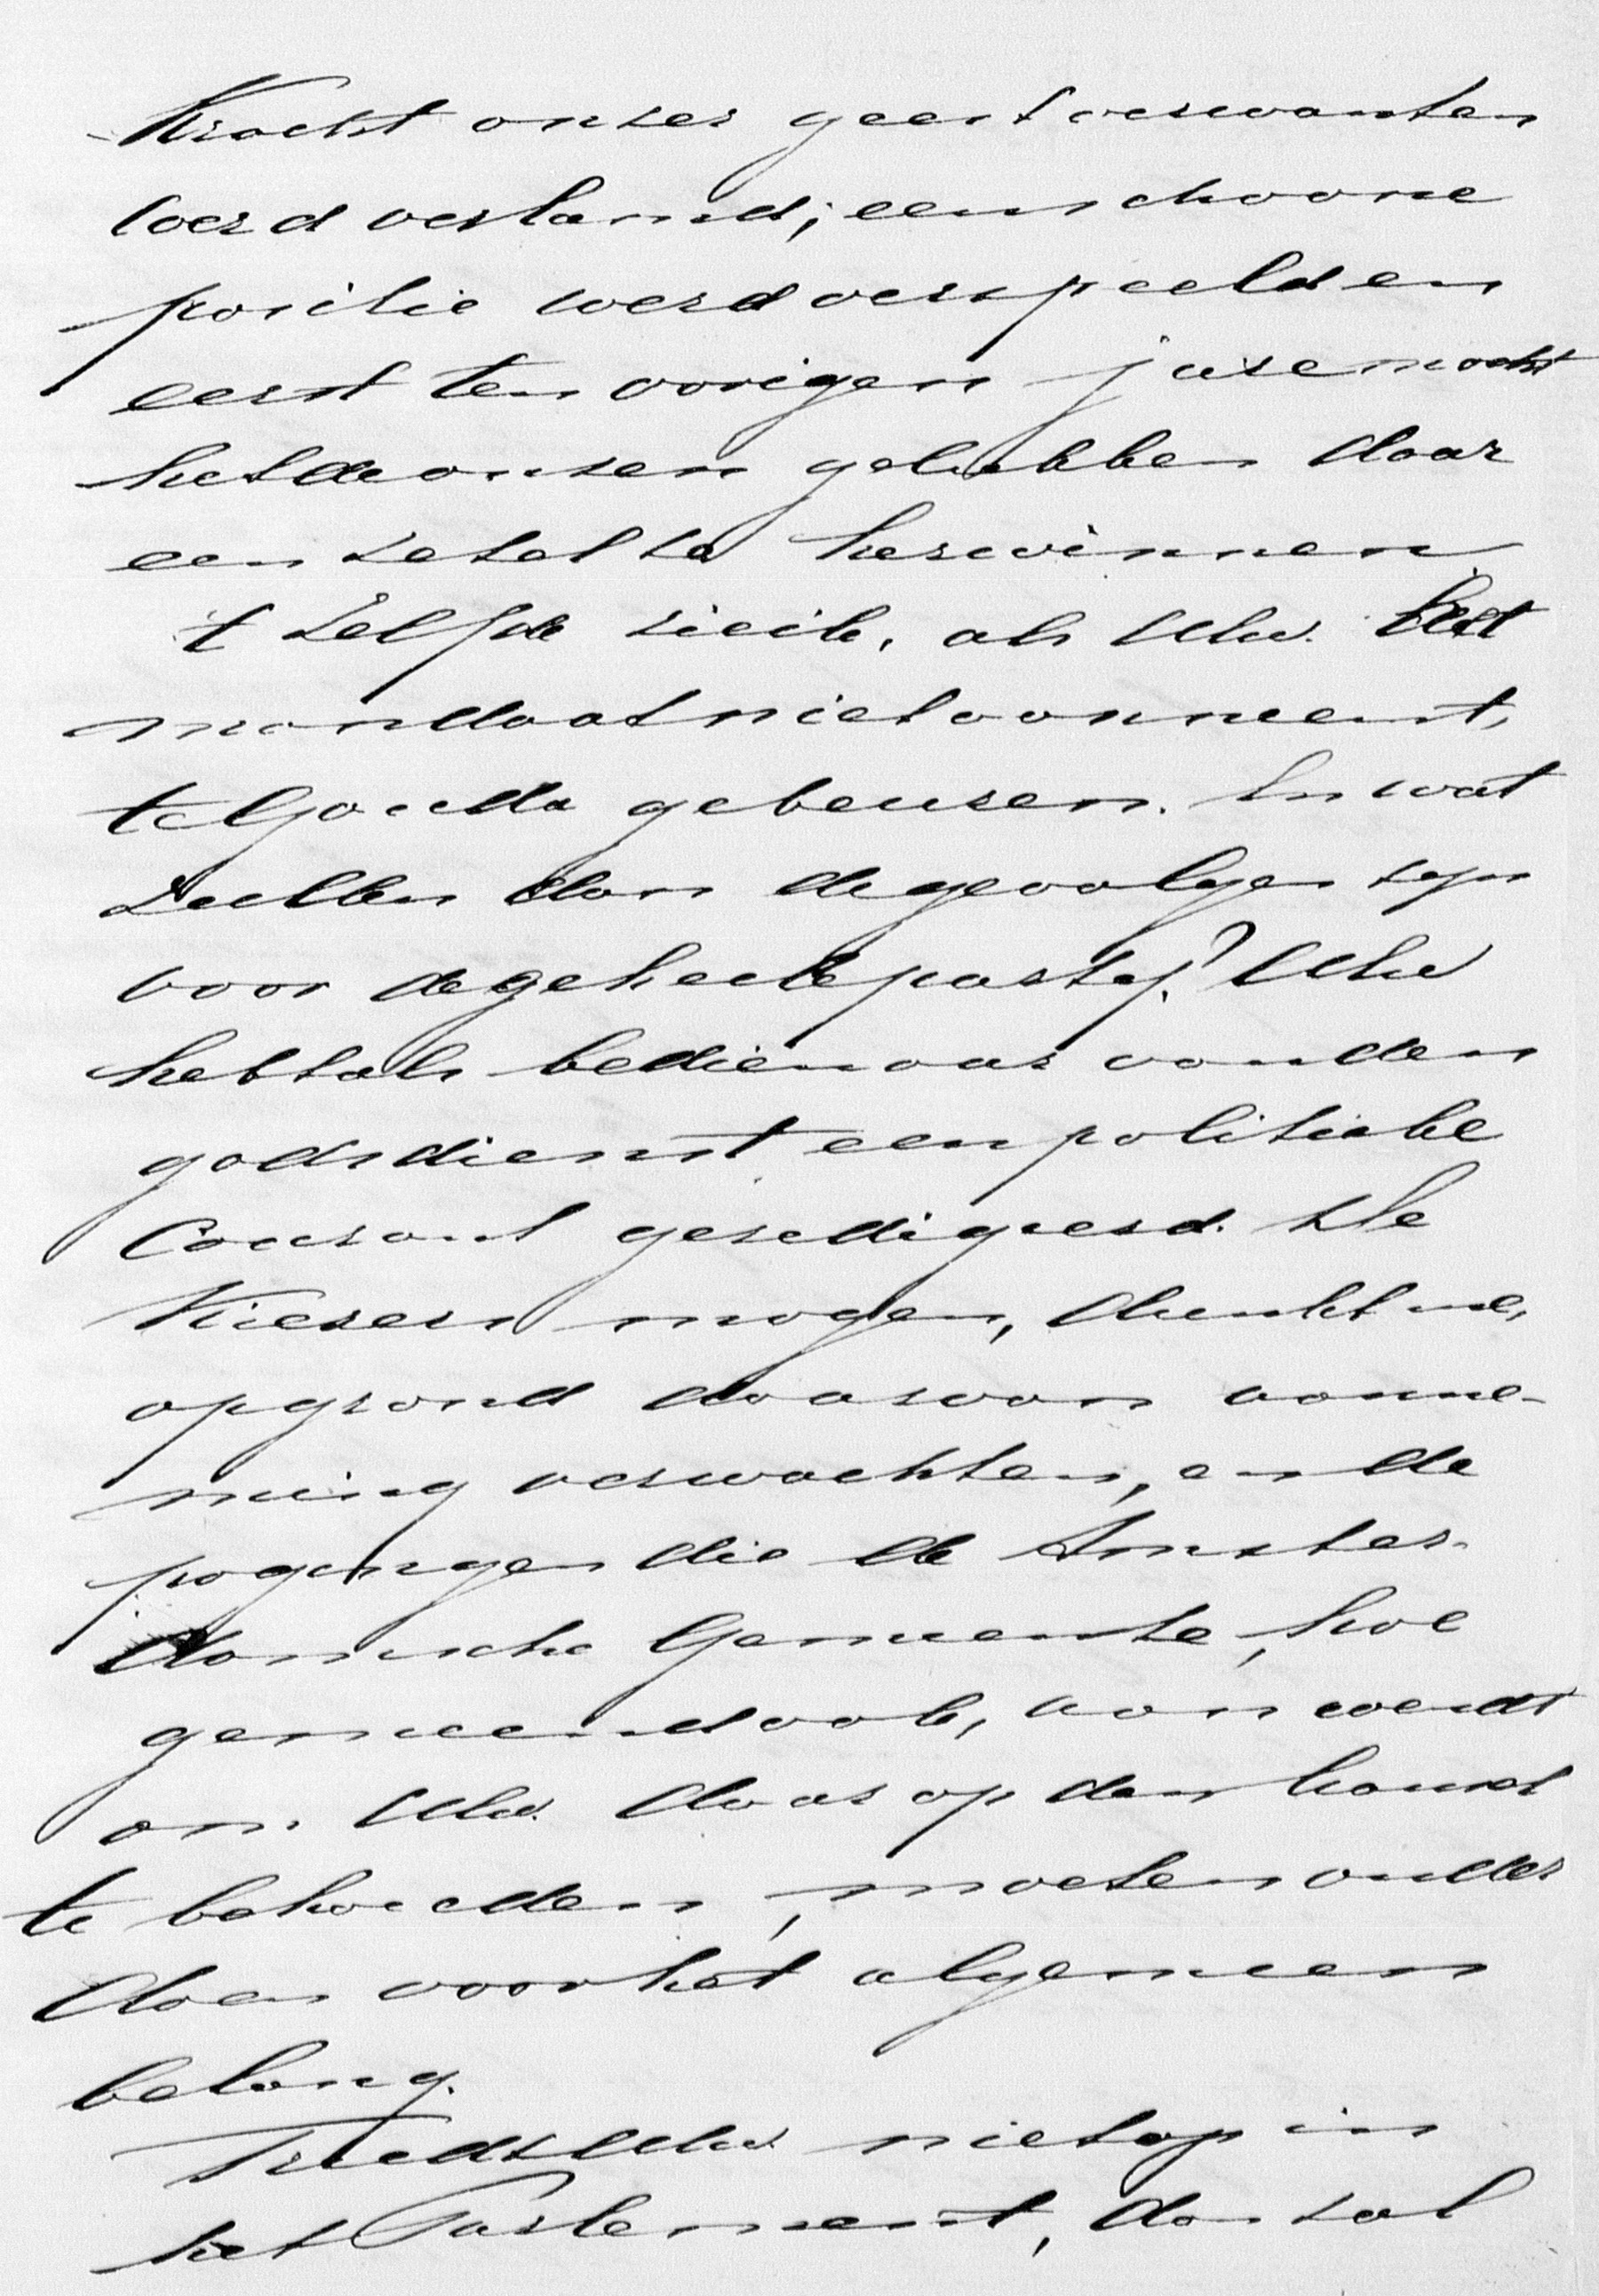 Kracht onzer geestverwanten
werd verlamd; een schoone
positie werd verspeeld en
eerst ten vorigen jare mocht
het de onzen gelukken daar
een zetel te herwinnen.
't Zelfde zie ik, als UEw. het
mandaat niet aanneemt,
te Gouda gebeuren. En wat
zullen dan de gevolgen zijn
voor de geheele partij? UEw
hebt als bedienaar van den
godsdienst een politieke
Courant geredigeerd. De
Kiezers mogen, dunkt me,
op grond daarvan aanne-
ming verwachten, en de
pogingen die de Amster-
damsche Gemeente, hoe
gemeend ook, aanwendt
om UEw. daar op den kansel
te behouden, moeten onder
doen voor het algemeen
belang.
Treedt UEw niet op in
het Parlement, dan zal